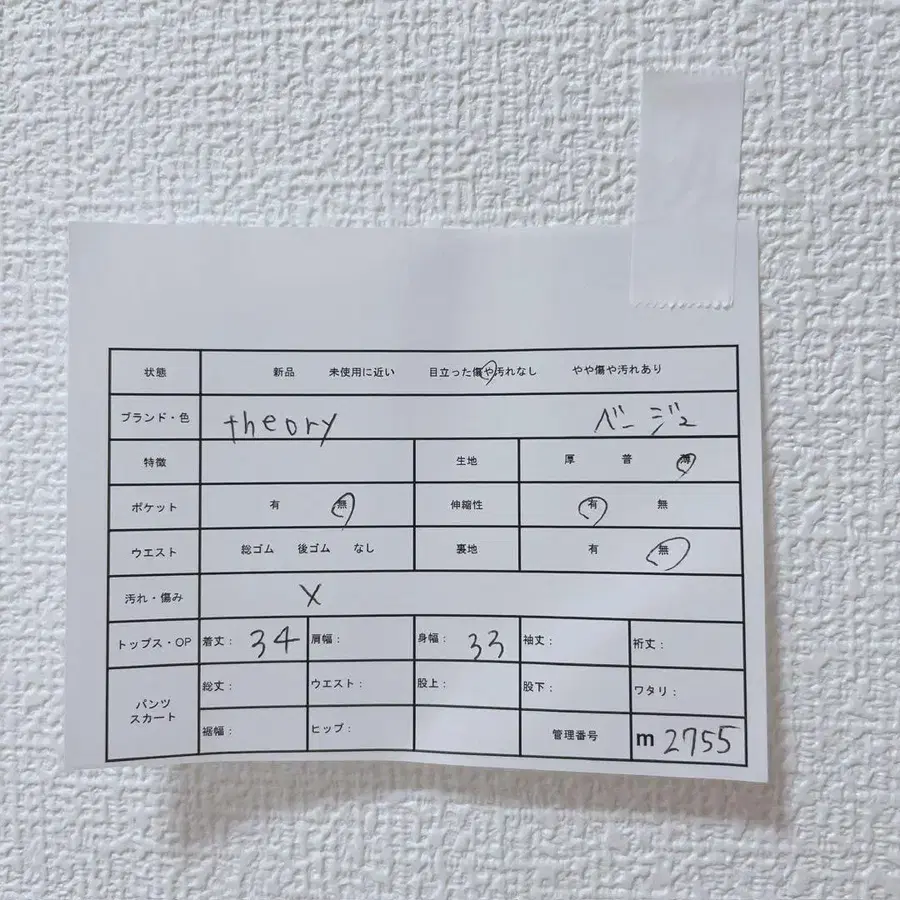 状態 新品 未使用に近い 目立った傷や汚れなし やや傷や汚れあり
ブランド・色 theory ベージュ
特徴 生地 厚 普 薄
ポケット 有 無 伸縮性 有 無
ウエスト 総ゴム 後ゴム なし 裏地 有 無
汚れ・傷み X
トップス・OP 着丈: 34 肩幅: 身幅: 33 袖丈: 裄丈:
パンツ スカート
総丈: ウエスト: 股上: 股下: ワタリ:
裾幅: ヒップ: 管理番号 m 2755